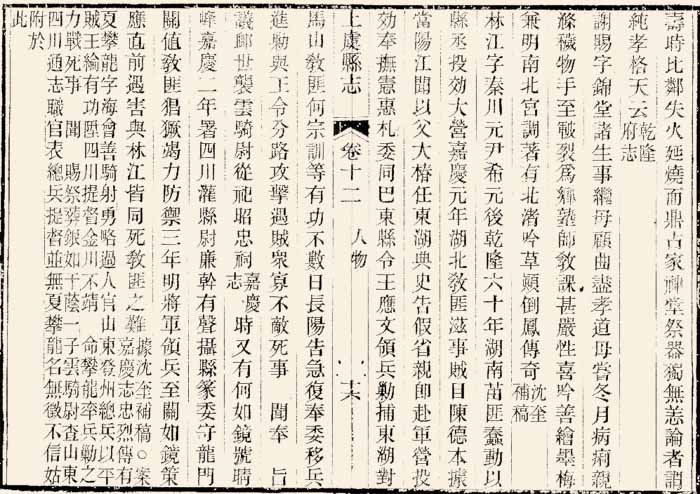 壽時比鄰失火延燒而鼎占家神堂祭器獨無恙論者謂
純孝格天云乾隆府志
謝賜字錦堂諸生事繼母顧曲盡孝道母嘗冬月病痢親
滌穢物手至皸裂爲緟塾師敎課甚嚴性喜吟善繪墨梅
兼明南北宮調著有北渚吟草顚倒鳳傳奇沈奎補稿
林江字秦川元尹希元後乾隆六十年湖南苗匪蠢動以
縣丞投効大營嘉慶元年湖北敎匪滋事賊目陳德本據
當陽江聞以父大椿任東湖典史告假省親卽赴軍營投
効奉撫憲惠札委同巴東縣令王應文領兵勦捕東湖對
上虞縣志 卷十二 人物
馬山敎匪何宗訓等有功不數日長陽告急復奉委移兵
進勦與王令分路攻擊遇賊衆寡不敵死事 聞奉 旨
議卹世襲雲騎尉從祀昭忠祠嘉慶志 時又有何如鏡號晴
峰嘉慶二年署四川灌縣尉廉幹有聲攝縣篆委守龍門
關値敎匪猖獗竭力防禦三年明將軍領兵至關如鏡策
應直前遇害與林江皆同死敎匪之難據沈奎補稿○案嘉慶志忠烈傳有
夏攀龍字海會善騎射勇略過人官山東登州總兵以平
賊王綸有功陞四川提督金川不靖 命攀龍率兵勦之
力戰死事 聞 賜祭葬銀如干蔭一子雲騎尉查山東
四川通志職官表總兵提督並無夏攀龍名無徵不信姑
附於此